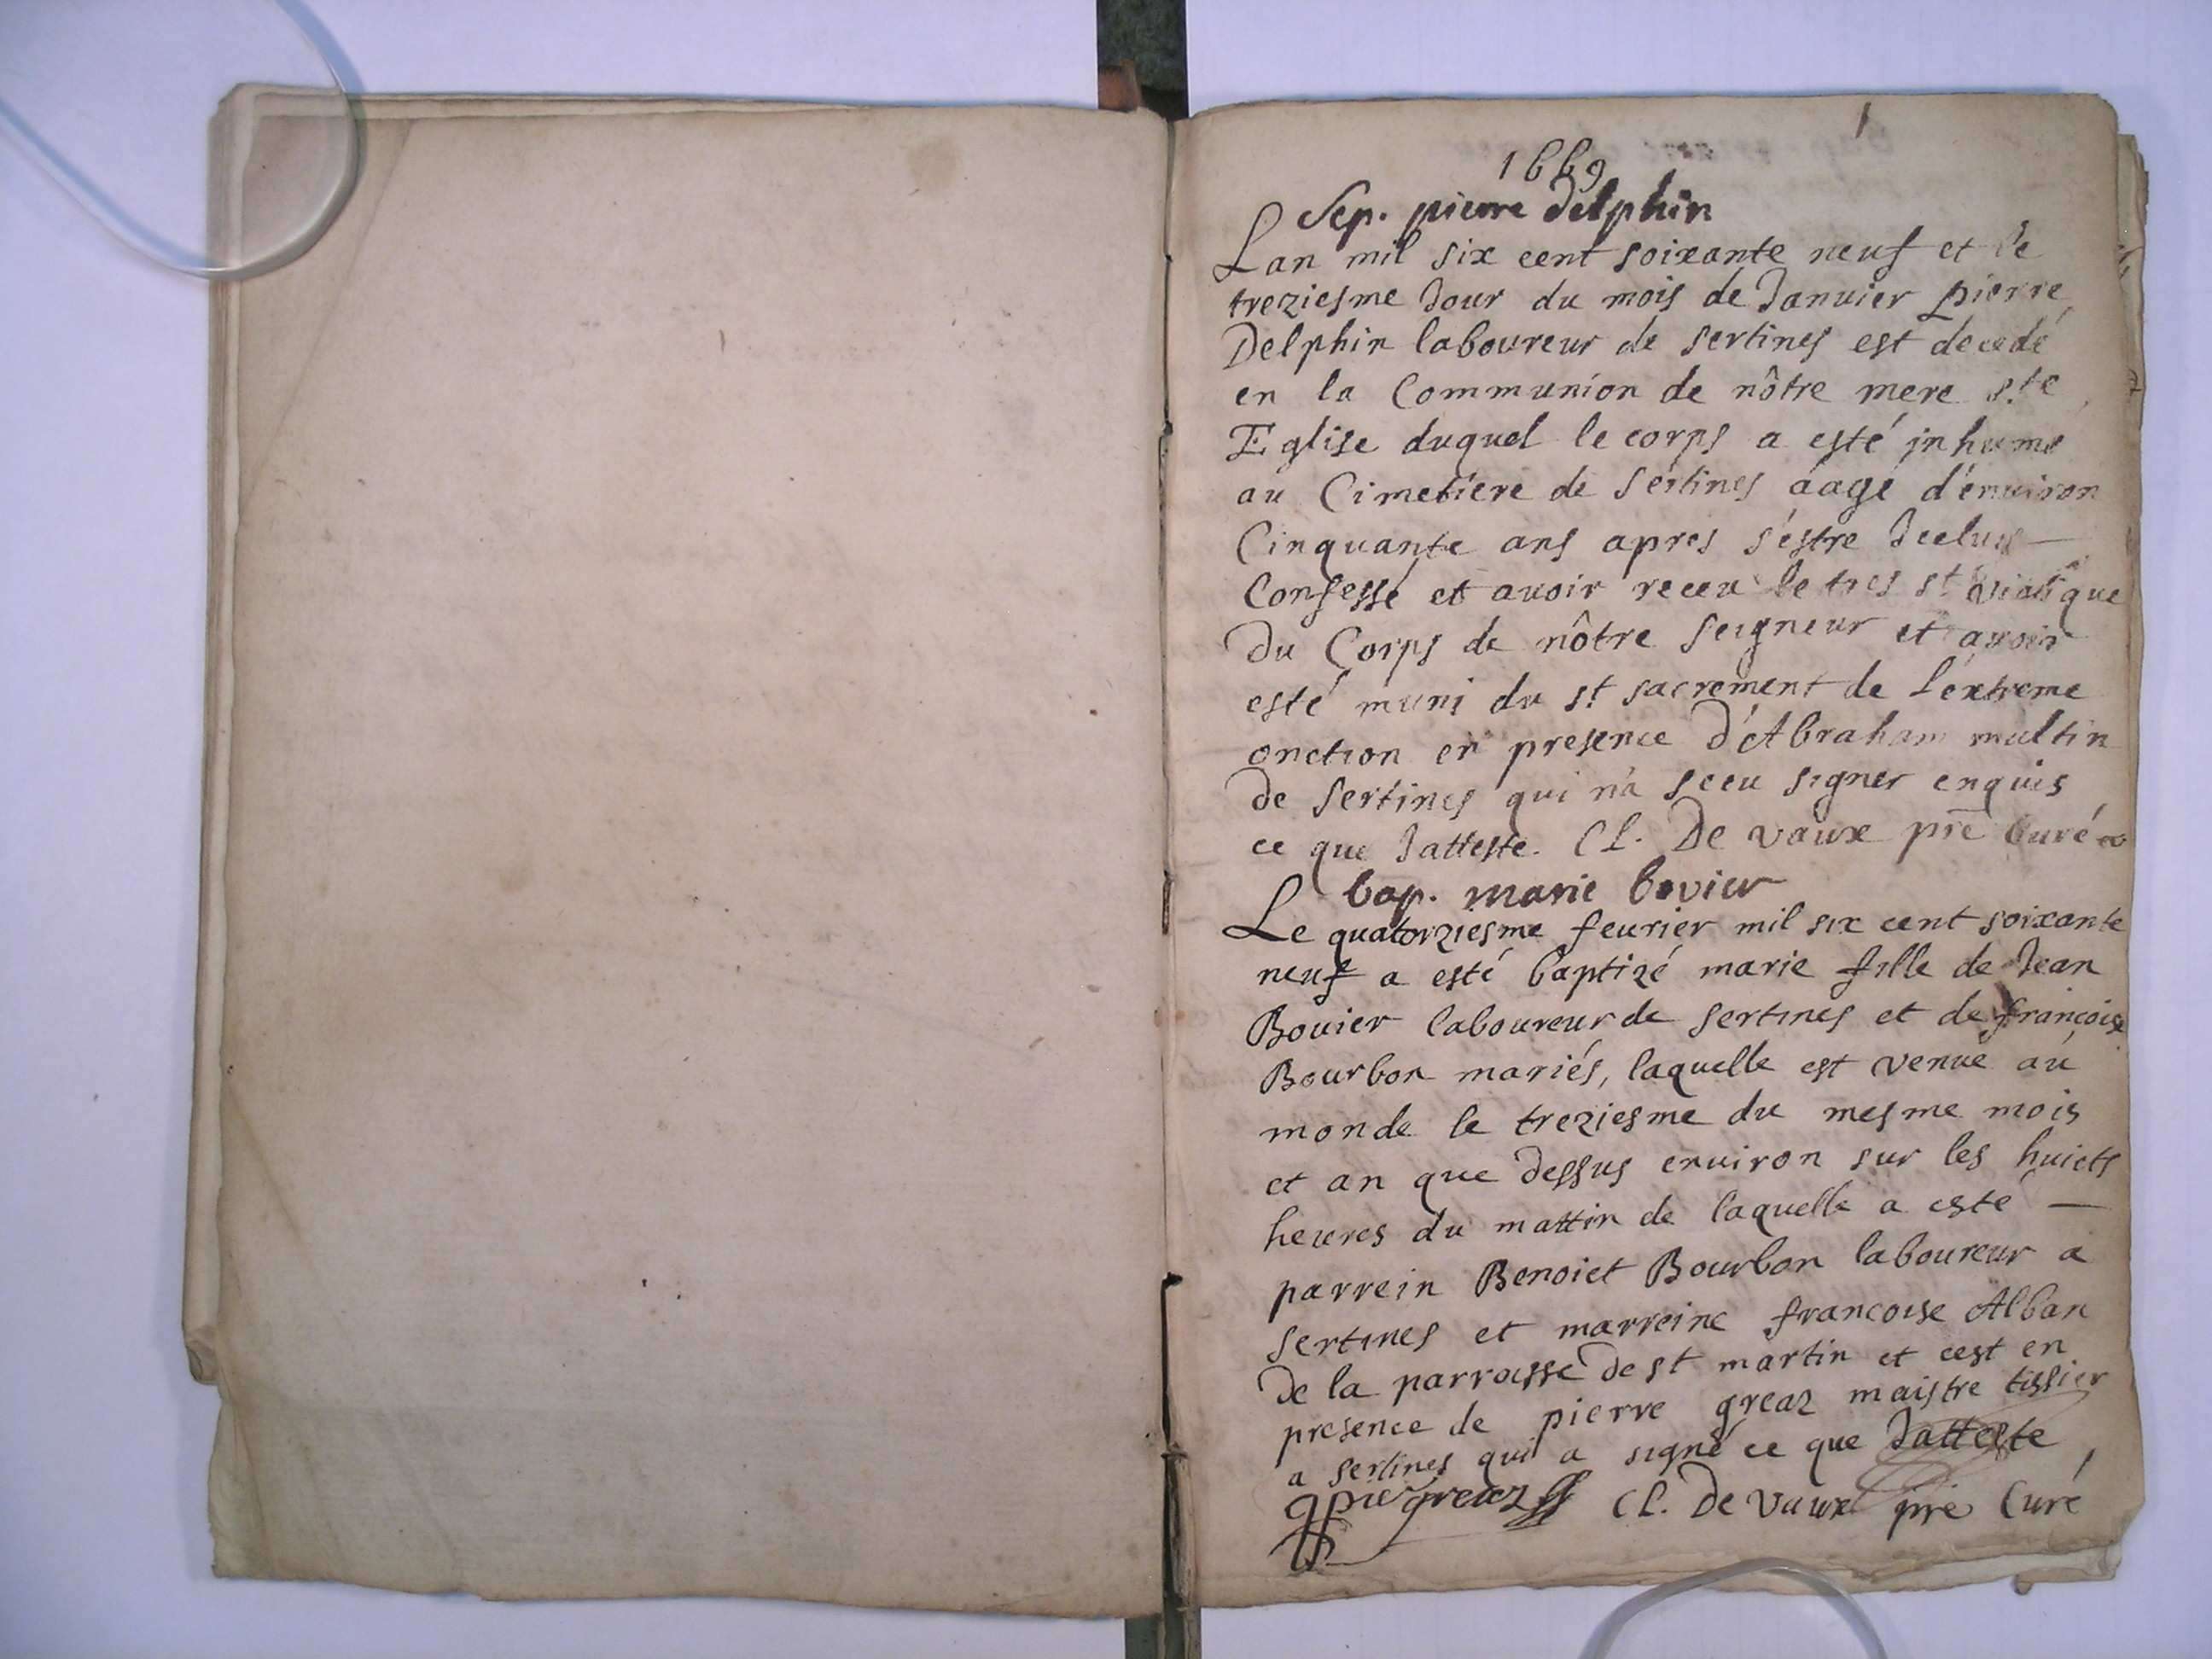 1
1669
Sep. pierre delphin
Lan mil six cent soixante neuf et le
treziesme Jour du mois de Janvier pierre
Delphin laboureur de sertines est decedé
en la Communion de nôtre mere s.te
Eglise duquel le corps a esté jnhumé
au Cimetiere de sertines áagé d'énuiron
Cinquante ans apres s'éstre
Confessé et auoir receu le tres s.t viatique
du Corps de nôtre seigneur et auoir
esté muni du s.t sacrement de l'éxtreme
onction en presence d'Abraham multin
de sertines qui n'a sceu signer enquis
ce que Jatteste. Cl. De vaux pre Curé
bap. marie bovier
Le quatorziesme feurier mil six cent soixante
neuf a esté baptizé marie fille de Jean
Bouier laboureur de sertines et de françoise
Bourbon mariés, laquelle est venue au
monde le treziesme du mesme mois
et an que dessus enuiron sur les huicts
heures du mattin de laquelle a esté —
parrein Benoict Bourbon laboureur a
sertines et marreine francoise Alban
de la parroisse de st martin et cest en
presence de pierre greaz maistre tissier
a sertines qui a signé ce que Jatteste
pre greaz Cl. De Vaux pre Curé